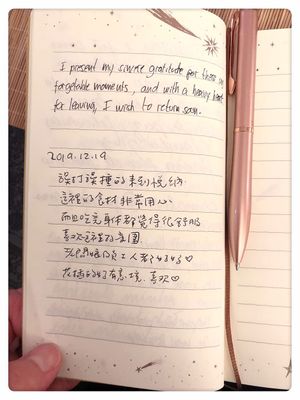 I present my sincere gratitude for these un
forgetable moments, and with a heavy heart
for leaving, I wish to return soon.
2019.12.19
誤打誤撞的來到悅納
這裡的食材非常用心
而且吃完身體都覺得很舒服
喜歡這裡的氛圍
人 ♡
喜歡♡